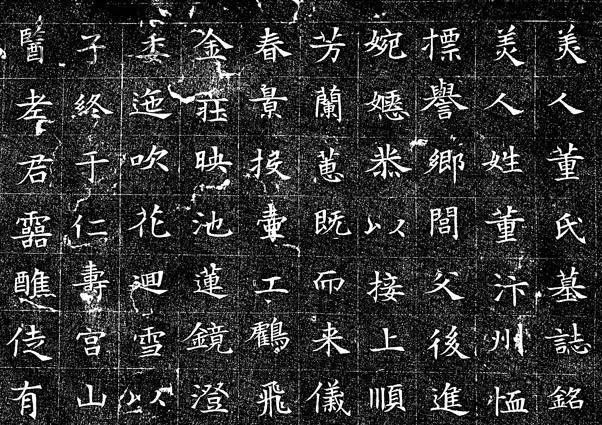 美人董氏墓誌銘
美人姓董汴州恤
摽譽鄉閭父後進
婉嫕恭以接上順
芳蘭蕙既而来儀
春景投壺工鸖飛
金莊映池蓮鏡澄
委迤吹花迴雪以
子終于仁壽宮山
醫老君靈醮徒有